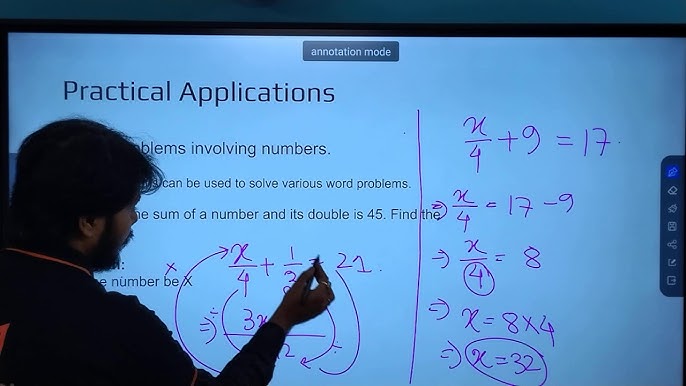 annotation mode
Practical Applications
blems involving numbers.
can be used to solve various word problems.
e sum of a number and its double is 45. Find the
e number be X
x
x/4 + 1/3 = 21.
÷
⇒ 3x
2
÷
x/4 + 9 = 17.
⇒ x/4 = 17 - 9
⇒ x/4 = 8
⇒ x = 8 × 4
⇒ x = 32